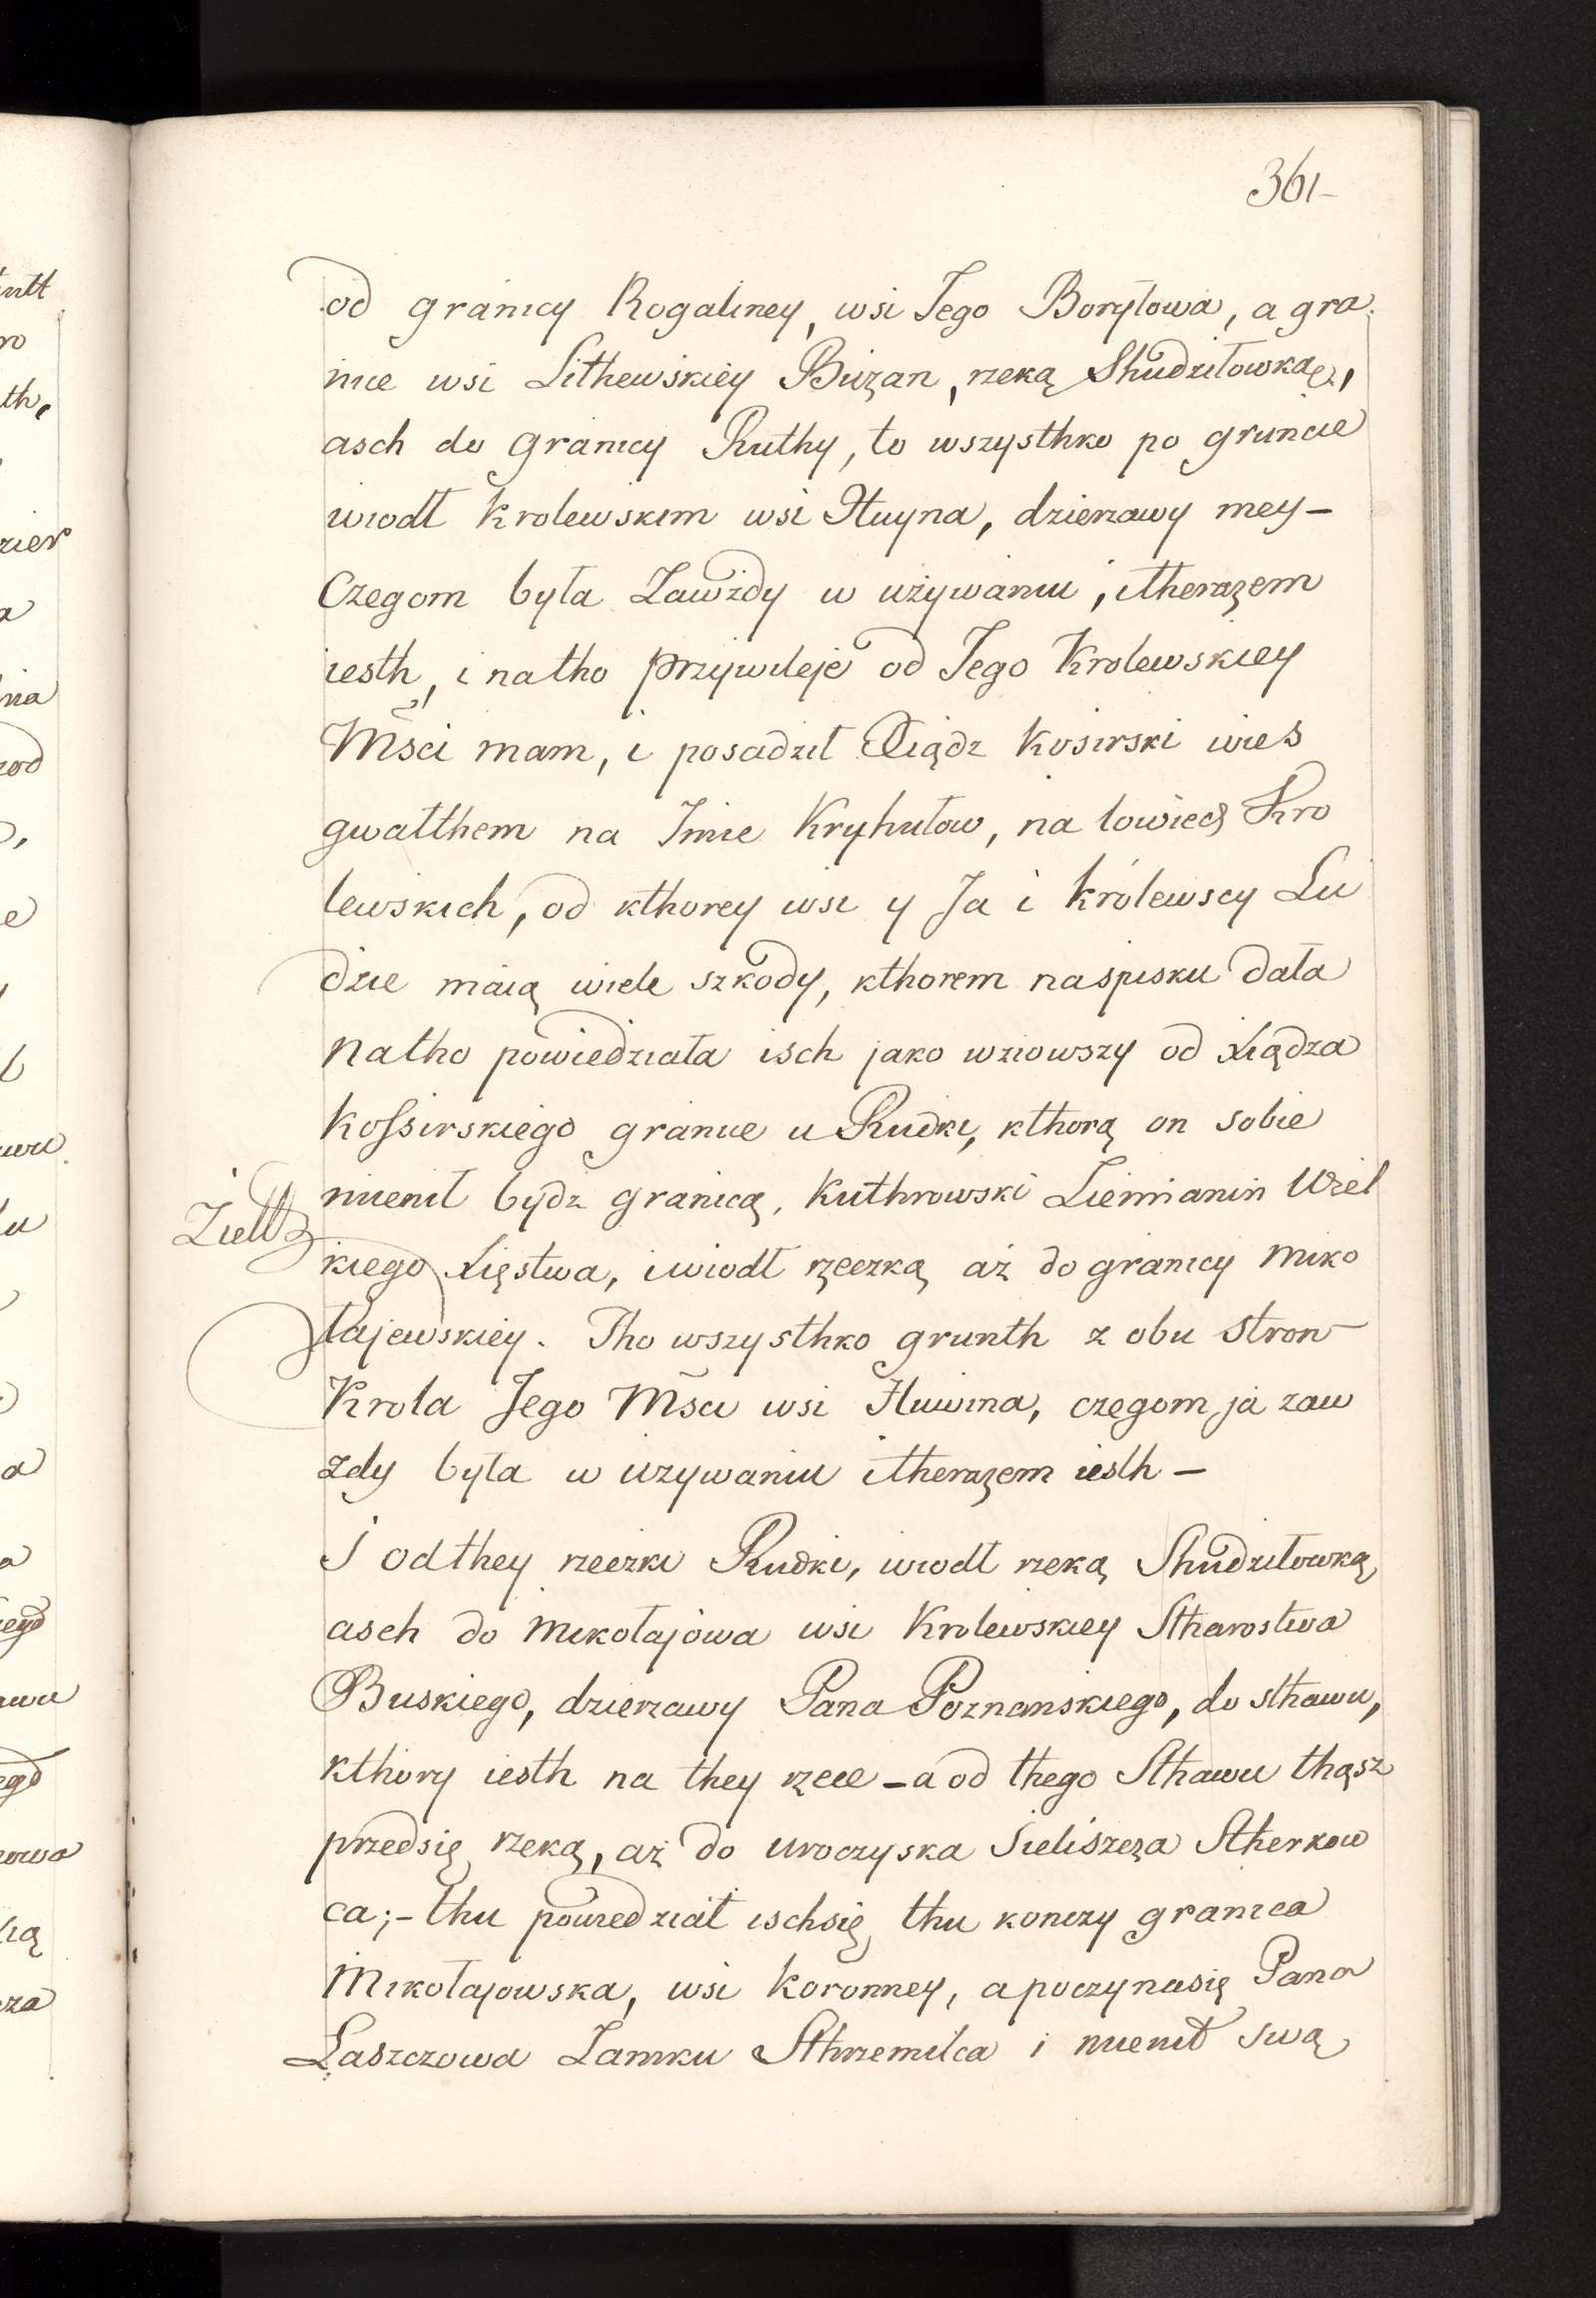 361
od granicy Rogalney, wsi Jego Boryłowa, a gra
nice wsi Lithewskiey Buzan, rzeką Shudziłowkąę,
asch do granicy Ruthy, to wszysthko po gruncie
wiodł krolewskim wsi Huyna, dzierzawy mey –
czegom była Zawżdy w używaniu, itherazem
iesth, i natho przywileje od Jego Krolewskiey
Mści mam, i posadził Xiądz Kosirski wies
gwałthem na Imie Kryhułow, na łowiech Kro
lewskich, od kthorey wsi y Ja i królewscy Lu
dzie maią wiele szkody, kthorem naspisku dała
natho powiedziała isch jako wziowszy od xiądza
Kossirskiego granice u Rudki, kthorą on sobie
mienił bydz granicą, Kuthrowski Ziemianin Wiel
kiego xięstwa, iwiodł rzeczką aż do granicy Miko
łajewskiey. Tho wszysthko grunth z obu stron
Krola Jego Mści wsi Huwina, czegom ja zaw
zdy była w uzywaniu itherazem iesth –
i odthey rzeczki Rudki, wiodł rzeką Shudziłowką,
asch do Mikołajowa wsi Krolewskiey Stharostwa
Buskiego, dzierzawy Pana Poznanskiego, do sthawu,
kthory iesth na they rzece – a od thego Sthawu thąsz
przedsię rzeką, aż do uroczyska Sieliszcza Stherkow
ca; – thu powiedział ischsię thu konczy granica
Mikołajowska, wsi koronney, a poczynasię Pana
Łaszczowa Zamku Sthrzemilca i mienił swą